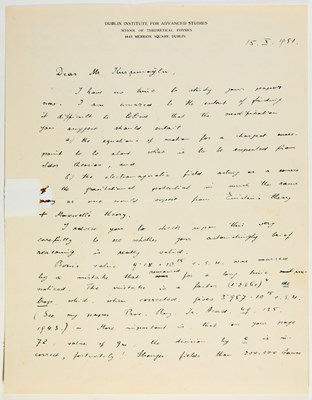 DUBLIN INSTITUTE FOR ADVANCED STUDIES
SCHOOL OF THEORETICAL PHYSICS
64-65 MERRION SQUARE DUBLIN
15. X. 1951.
Dear Mr. Kursunoglu,
I have no time to study your papers
now. I am amazed to the extent of finding
it difficult to believe that the modification
you suggest should entail
a) the equations of motion for a charged mass-
point to be about what is to be expected from
older theories, and
b) the electromagnetic field acting as a source
of the gravitational potential in much the same
way as one would expect from Einstein's theory
+ Maxwell's theory.
I advise you to check upon this very
carefully to see whether your astonishingly brief
reasoning is really valid.
Born's value 9.18 · 10¹⁵ e.s.u. was marred
by a mistake that remained for a long time
noticed. The mistake is a factor (1.2361)
which, when corrected, gives 3.957 · 10¹⁵ e.s.u.
(See my paper Proc. Roy. Ir. Acad. 49, 135,
1943.) — More important is that on your page
72 value of the division by c is in-
correct, fortunately! Stronger fields than 200,000 Gauss